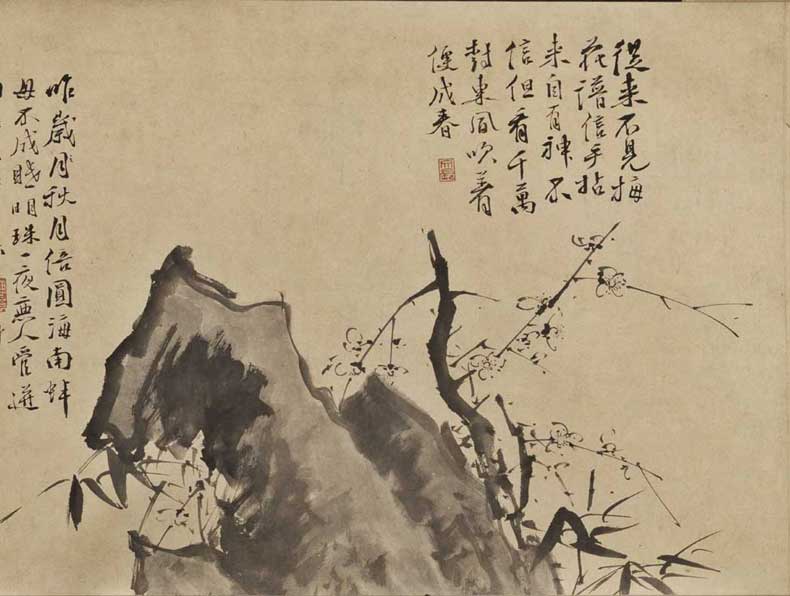 從來不見梅
花譜信手拈
來自有神不
信但看千萬
樹東風吹著
便成春
昨歲秋月倍圓海南蚌
母不成眠明珠一夜無人管迸